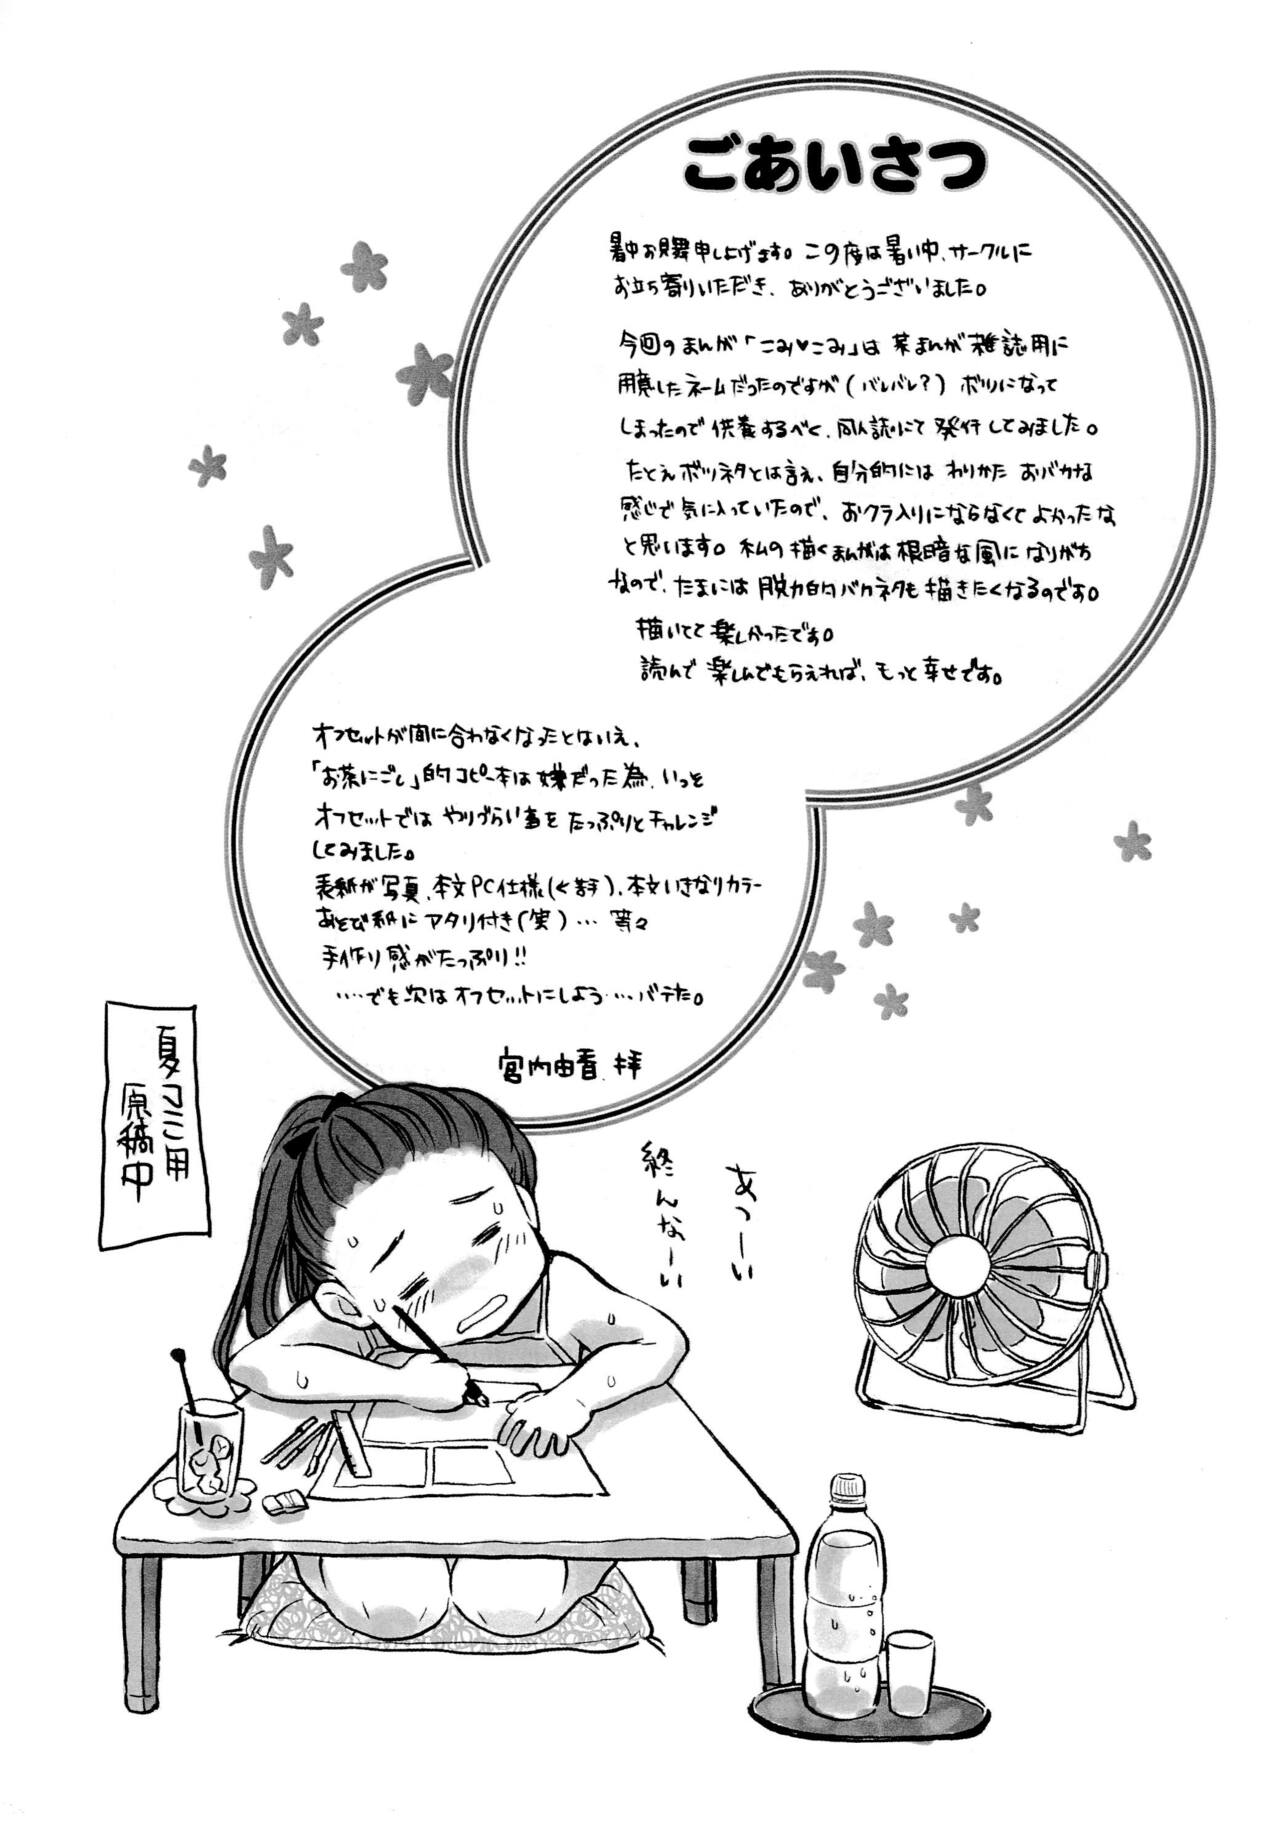 ごあいさつ
暑中お見舞申し上げます。この度は暑い中、サークルに
お立ち寄りいただき、ありがとうございました。
今回のまんが「こみ♥こみ」は某まんが雑誌用に
用意したネームだったのですが(バレバレ?)ボツになって
しまったので供養するべく、同人誌にて発行してみました。
たとえボツネタとは言え、自分的にはわりかたおバカな
感じで気に入っていたので、おクラ入りにならなくてよかったな
と思います。私の描くまんがは根暗な風になりがち
なので、たまには脱力的バカネタも描きたくなるのです。
描いてて楽しかったです。
読んで楽しんでもらえれば、もっと幸せです。
オフセットが間に合わなくなったとはいえ、
「お茶にごし」的コピー本は嫌だった為、いっそ
オフセットではやりづらい事をたっぷりとチャレンジ
してみました。
表紙が写真、本文PC仕様(く苦手)、本文いきなりカラー
あそび紙にアタリ付き(笑)…等々
手作り感がたっぷり!!
‥‥でも次はオフセットにしよう…バテた。
宮内由香 拝
夏コミ用
原稿中
あつーい
終んなーい